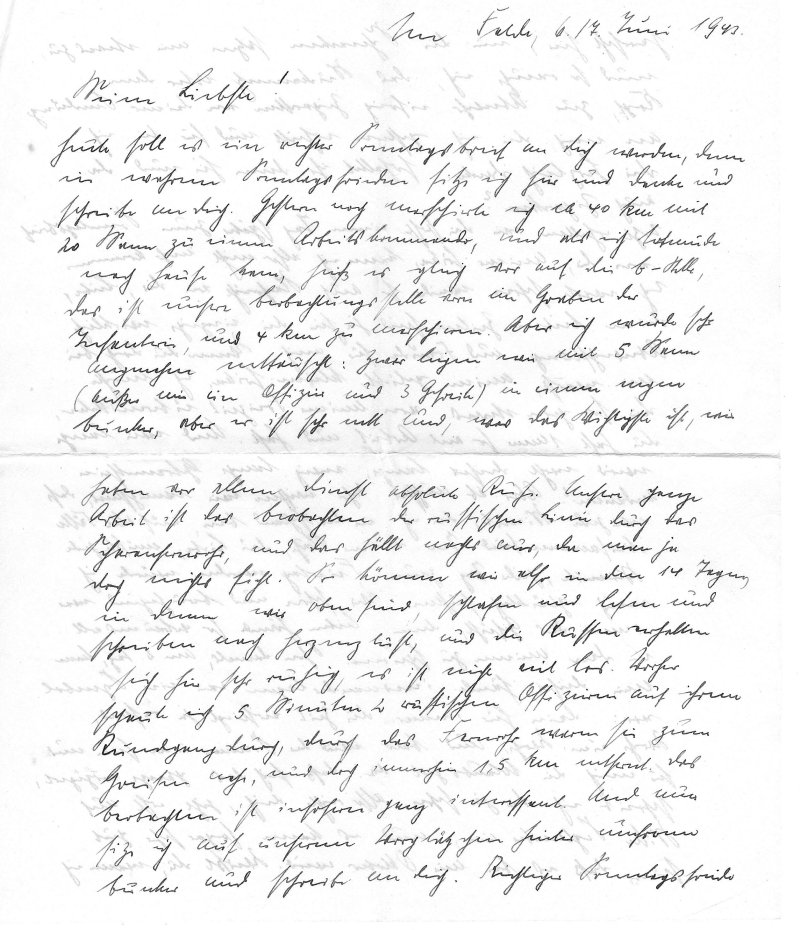 Im Felde, 6./7. Juni 1943.
Meine Liebste!
Heute soll es ein rechter Sonntagsbrief an Dich werden, denn
in wahrem Sonntagsfrieden sitze ich hier und denke und
schreibe an Dich. Gestern noch marschierte ich ca 40 km mit
20 Mann zu einem Arbeitskommando, und als ich todmüde
nach Hause kam, hieß es gleich vor auf die B-Stelle,
das ist unsere Beobachtungsstelle vorn im Graben der
Infanterie, und 4 km zu marschieren. Aber ich wurde sehr
angenehm enttäuscht: Zwar liegen wir mit 5 Mann
(außer mir ein Offizier und 3 Gefreite) in einem engen
Bunker, aber er ist sehr nett und, was das Wichtigste ist, wir
haben vor allem Dienst absolute Ruhe. Unsere ganze
Arbeit ist das Beobachten der russischen Linie durch das
Scherenfernrohr, und das fällt nachts aus, da man ja
doch nichts sieht. So können wir also in den 14 Tagen,
in denen wir oben sind, schlafen und lesen und
schreiben nach Herzenslust, und die Russen verhalten
sich hier sehr ruhig, es ist nicht viel los. Vorher
schaute ich 5 Minuten 2 russischen Offizieren auf ihrem
Rundgang durch, durch das Fernrohr waren sie zum
Greifen nahe, und doch immerhin 1,5 km entfernt. Das
Beobachten ist insofern ganz interessant. Und nun
sitze ich auf unserem Vorplätzchen hinter unserem
Bunker und schreibe an Dich. Richtiger Sonntagsfriede